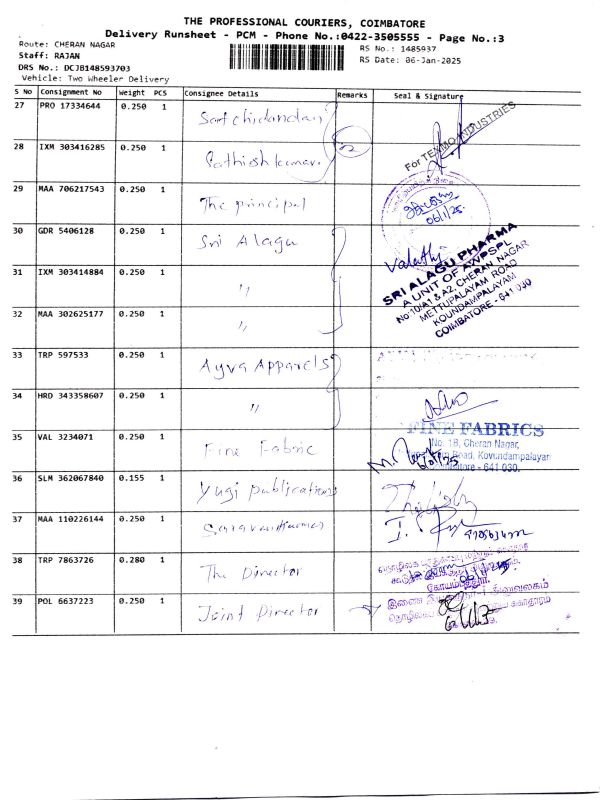 THE PROFESSIONAL COURIERS, COIMBATORE
Delivery Runsheet - PCM - Phone No.:0422-3505555 - Page No.:3
Route: CHERAN NAGAR
RS No.: 1485937
Staff: RAJAN
RS Date: 06-Jan-2025
DRS No.: DCJB148593703
Vehicle: Two Wheeler Delivery
S No Consignment No Weight PCS Consignee Details Remarks Seal & Signature
27 PRO 17334644 0.250 1 Satchidandan
For TEXMO INDUSTRIES
28 IXM 303416285 0.250 1 Sathishkumar
2
29 MAA 706217543 0.250 1 The principal
06/1/25
30 GDR 5406128 0.250 1 Sri Alagu
31 IXM 303414884 0.250 1 "
32 MAA 302625177 0.250 1 "
SRI ALAGU PHARMA
A UNIT OF AWPSPL
No:10/A1 & A2, CHERAN NAGAR
METTUPALAYAM ROAD
KOUNDAMPALAYAM
COIMBATORE - 641 030
33 TRP 597533 0.250 1 Ayva Apparels
34 HRD 343358607 0.250 1 "
35 VAL 3234071 0.250 1 Fine Fabric
FINE FABRICS
No: 18, Cheran Nagar,
Road, Kovundampalayam
- 641 030.
36 SLM 362067840 0.155 1 Yugi publications
37 MAA 110226144 0.250 1 Saravanakumar
38 TRP 7863726 0.280 1 The Director
39 POL 6637223 0.250 1 Joint Director